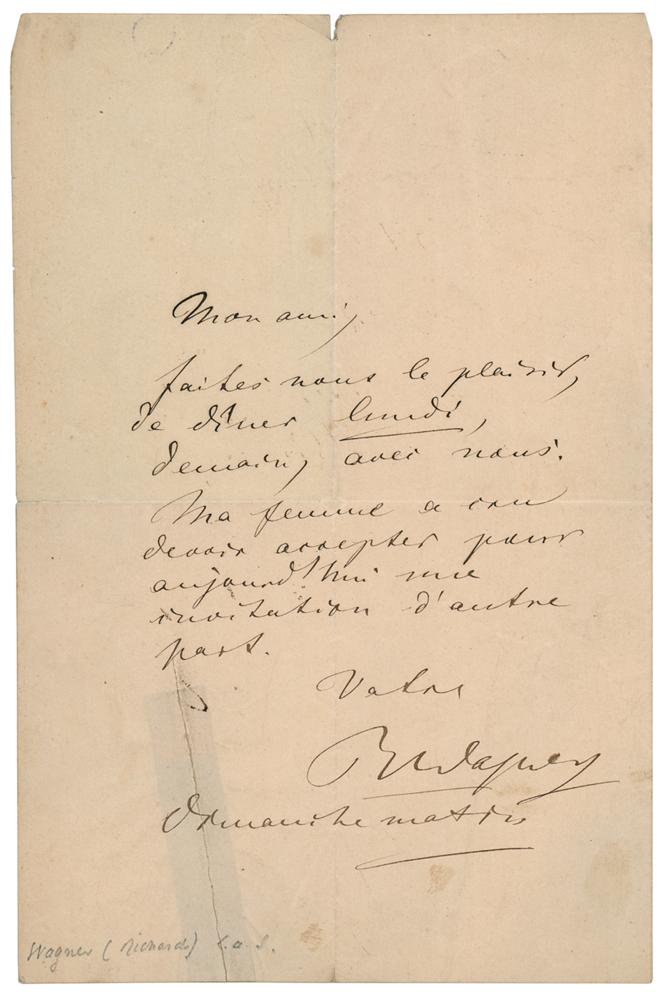 Mon ami,
faites nous le plaisir,
de dîner lundi,
demain, avec nous.
Ma femme a cru
devoir accepter pour
aujourd'hui une
invitation d'autre
part.
Votre
RWagner
Dimanche matin
Wagner (Richard) L. a. S.